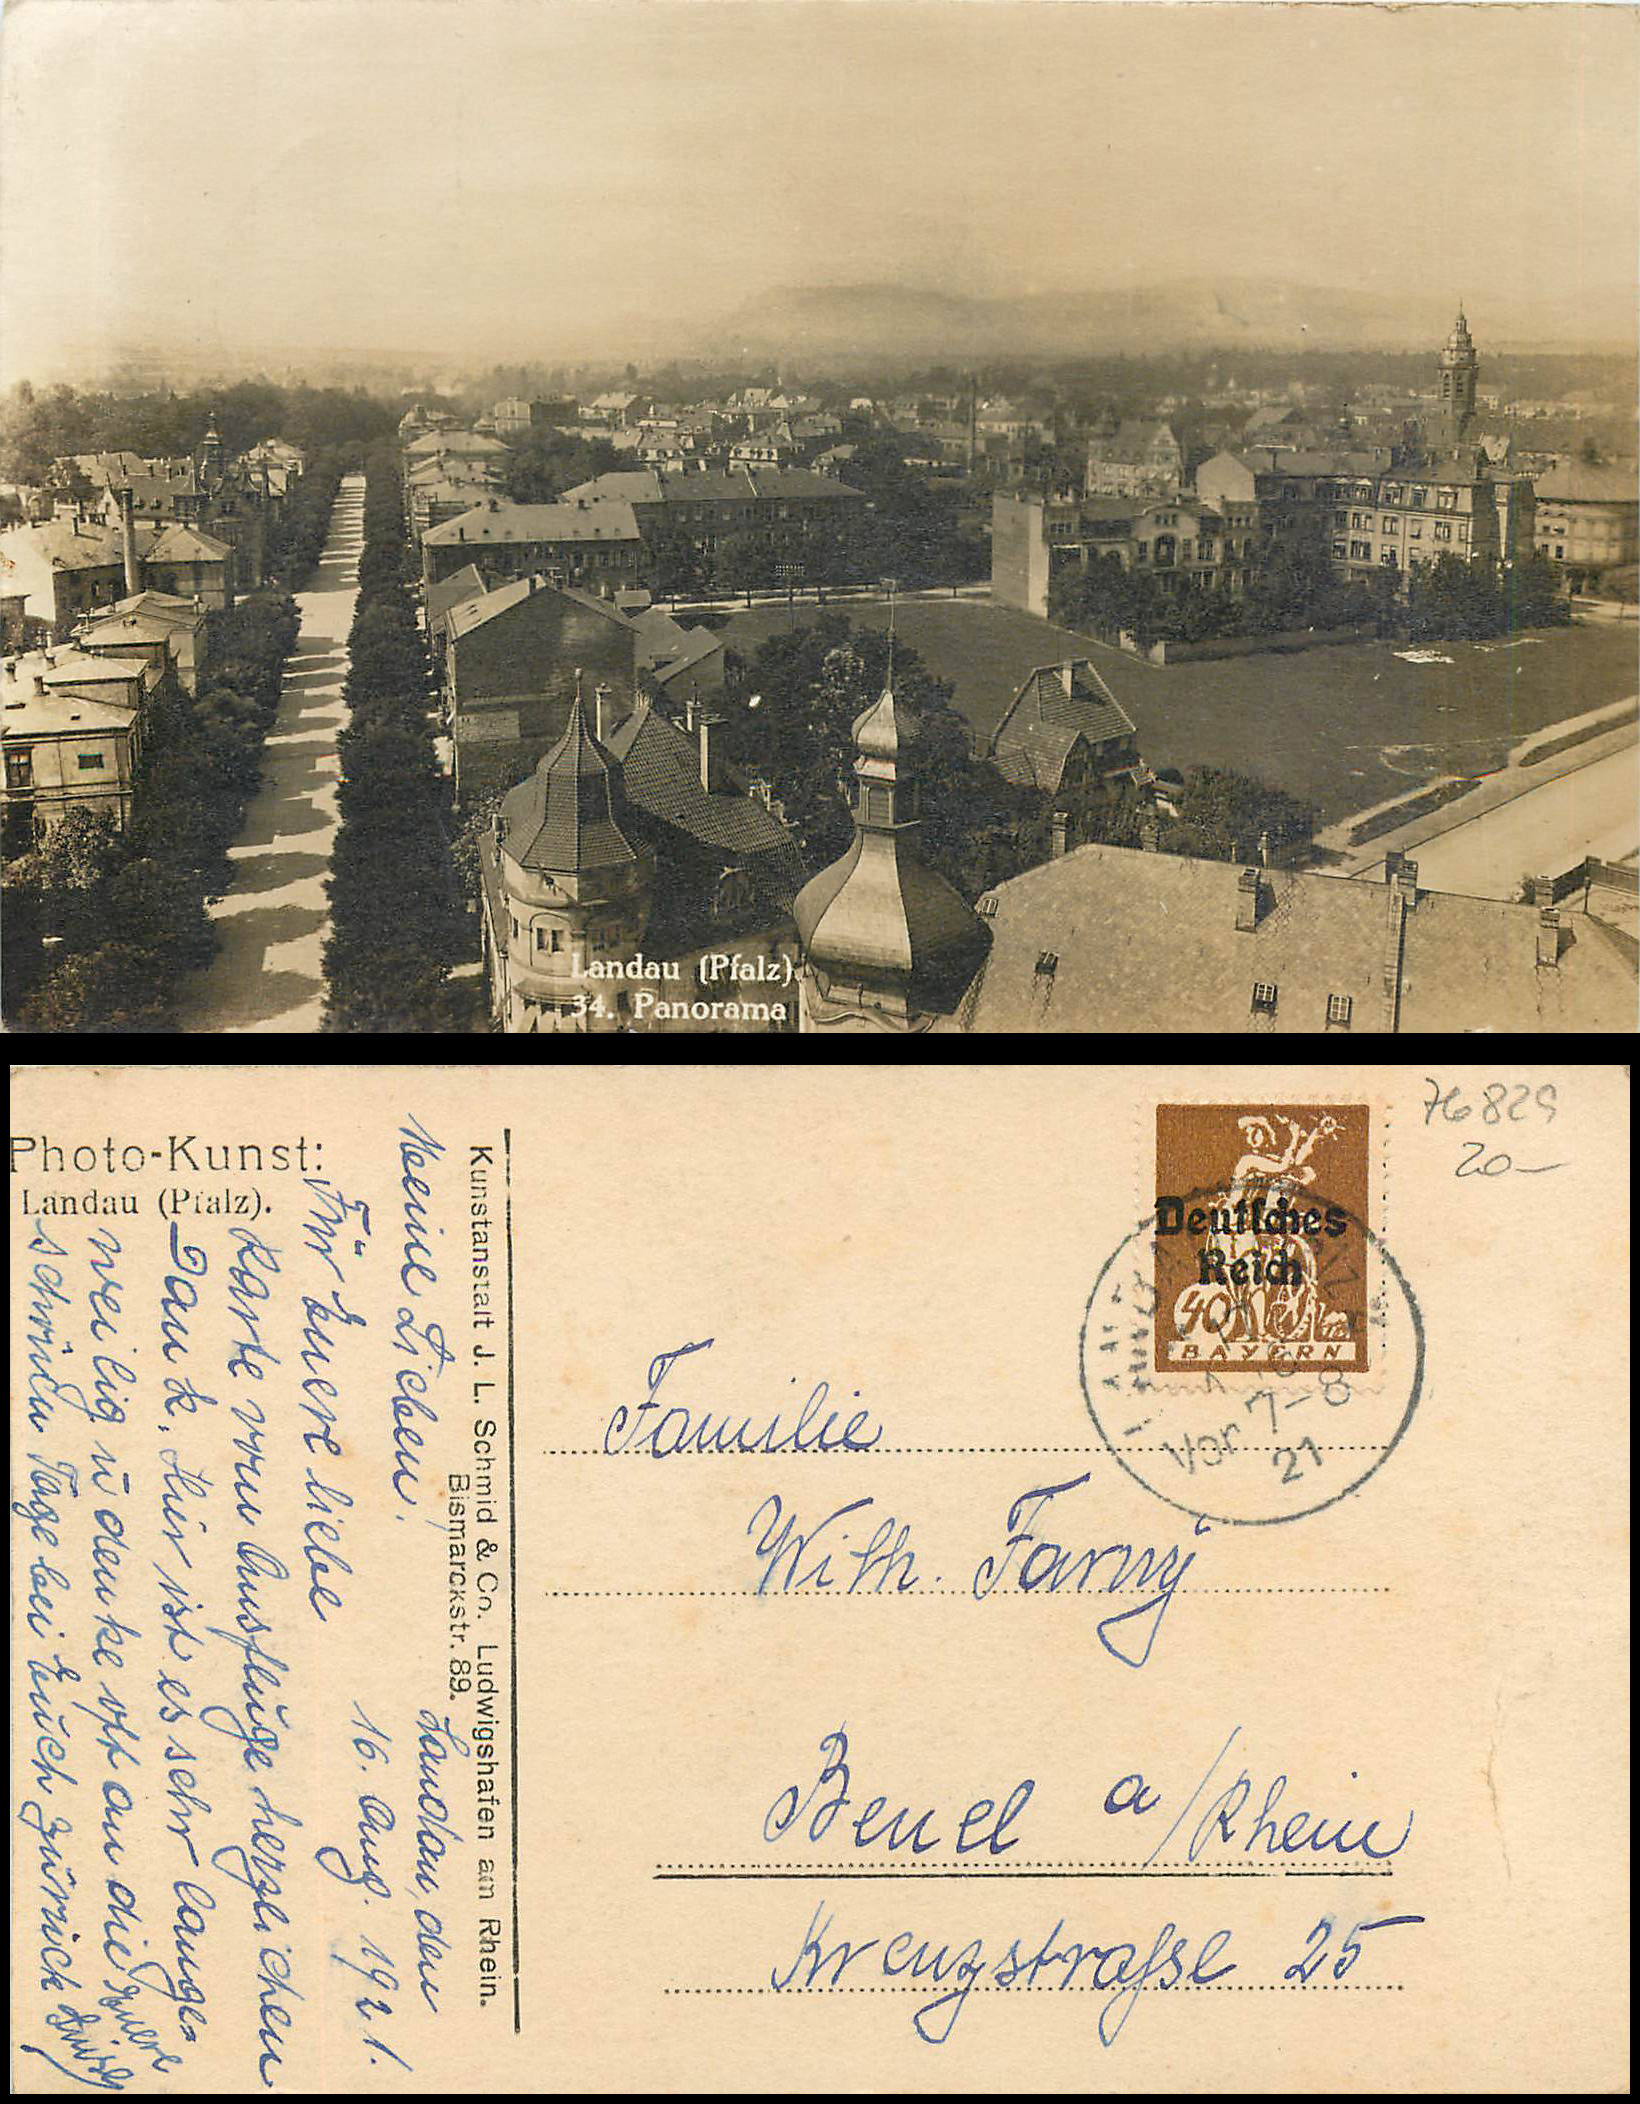 Landau (Pfalz)
34. Panorama
Photo-Kunst:
Landau (Pfalz).
Kunstanstalt J. L. Schmid & Co. Ludwigshafen am Rhein.
Bismarckstr. 89.
Landau, den
16. Aug. 1921.
Meine Lieben!
Für Euere liebe
Karte vom Ausfluge herzlichen
Dank. Hier ist es sehr lange-
weilig u denke oft an die
schönen Tage bei Euch zurück
76829
20-
Deutsches
Reich
40
BAYERN
Vor 7-8
21
Familie
Wilh. Farny
Beuel a/Rhein
Kreuzstraße 25